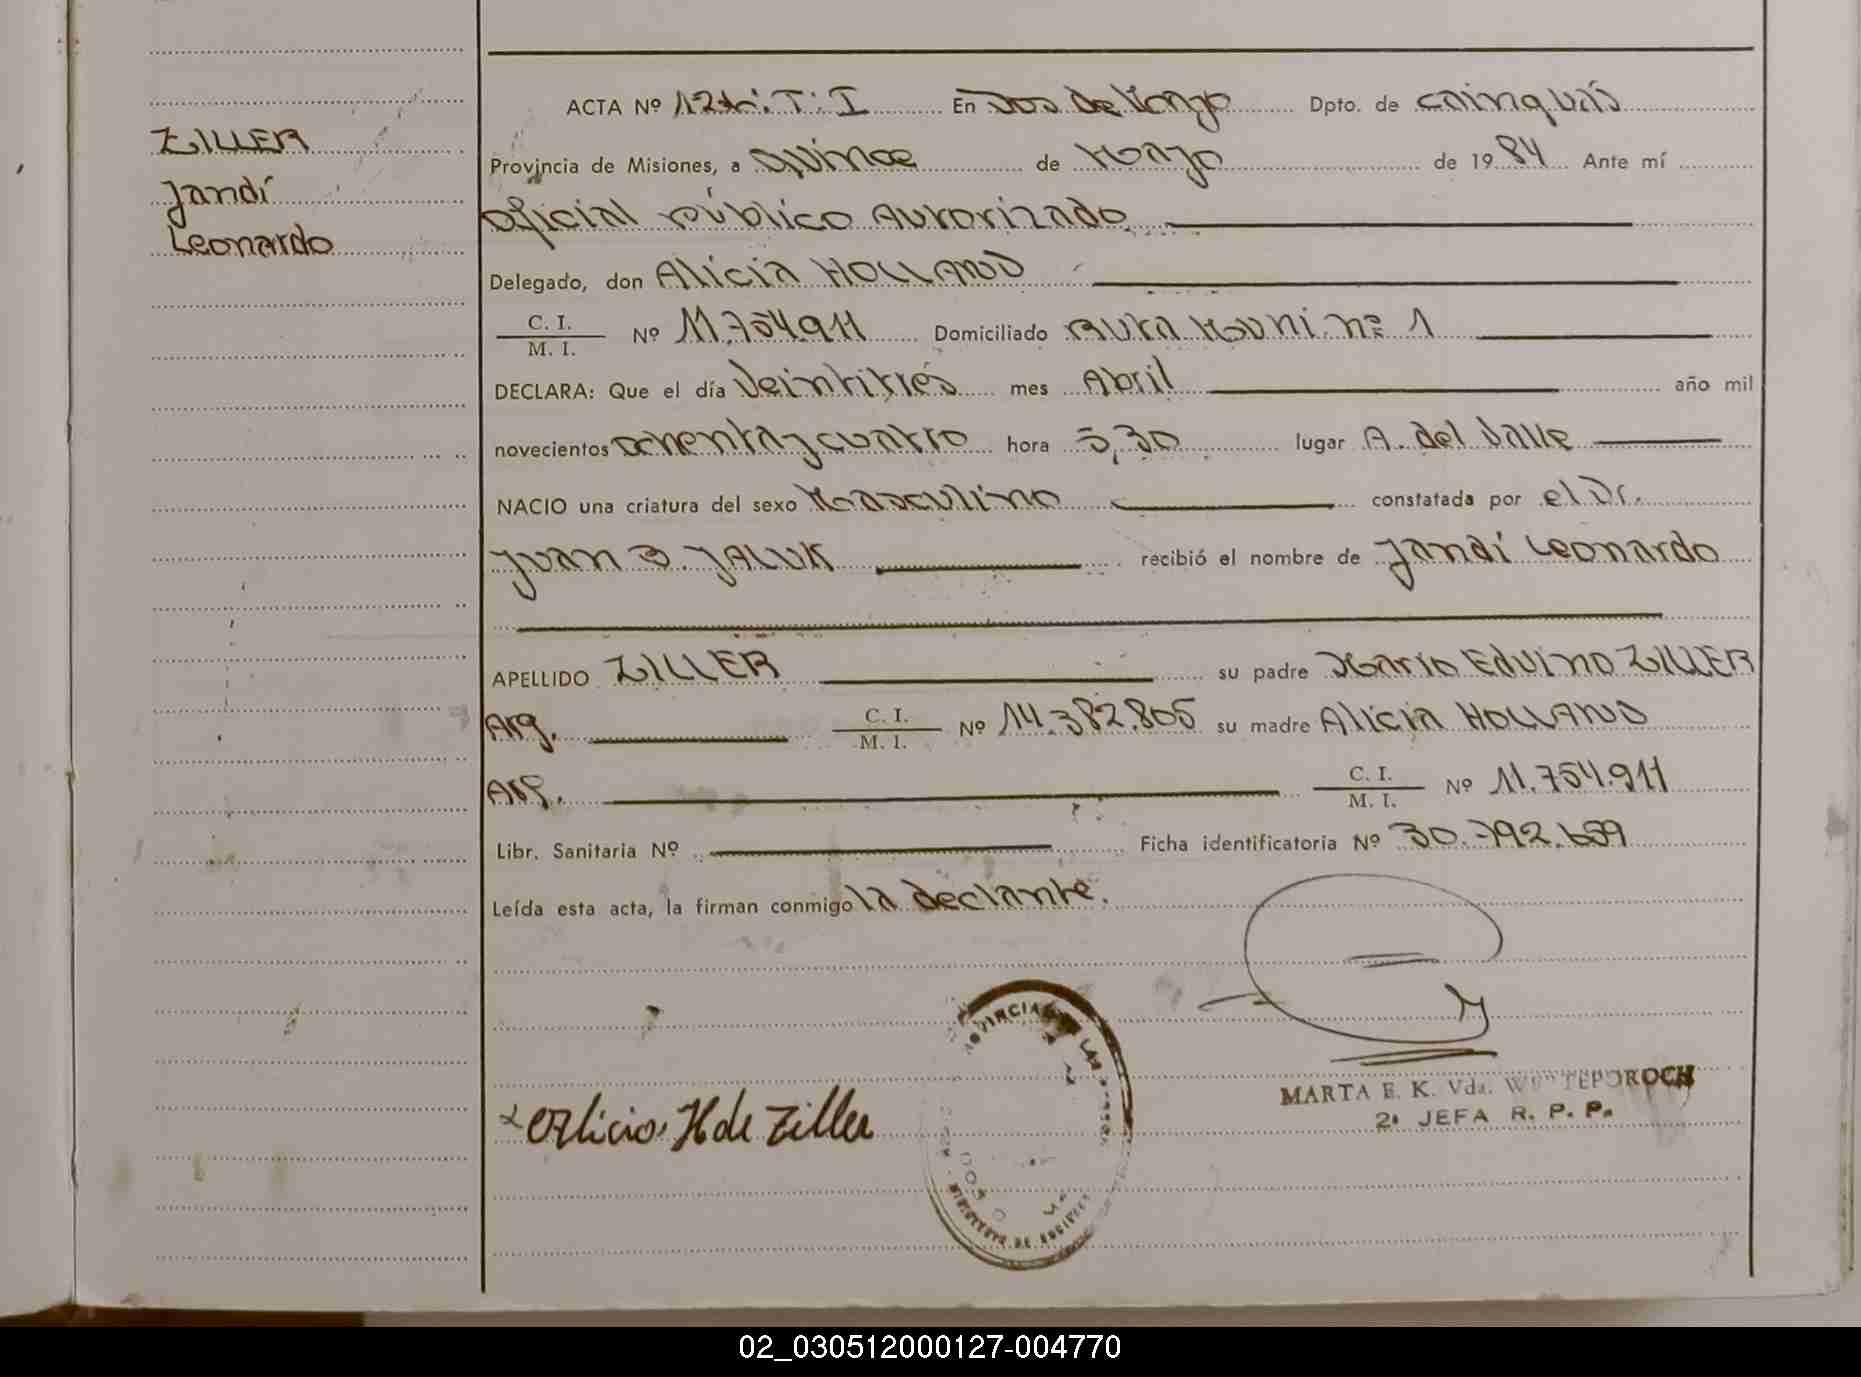 ZILLER
Jandí
Leonardo
ACTA Nº T: I En Dos de Mayo Dpto. de Cainguás
Provincia de Misiones, a Quince de Mayo de 1984 Ante mí
Oficial Público Autorizado.
Delegado, don Alicia HOLLAND
C. I.
M. I. Nº 11.754.911 Domiciliado Ruta Muni. Nº 1
DECLARA: Que el día Veintitres mes Abril año mil
novecientos ochenta y cuatro hora 5,30 lugar A. del Valle
NACIO una criatura del sexo Masculino constatada por el Dr.
Juan B. JALUK recibió el nombre de Jandí Leonardo
APELLIDO ZILLER su padre Mario Edvino ZILLER
Arg. C. I.
M. I. Nº 14.382.805 su madre Alicia HOLLAND
Arg. C. I.
M. I. Nº 11.754.911
Libr. Sanitaria Nº Ficha identificatoria Nº 30.792.659
Leída esta acta, la firman conmigo la declante.
Alicia H de Ziller
MARTA E. K. Vda.
2ª JEFA R. P. P.
02_030512000127-004770